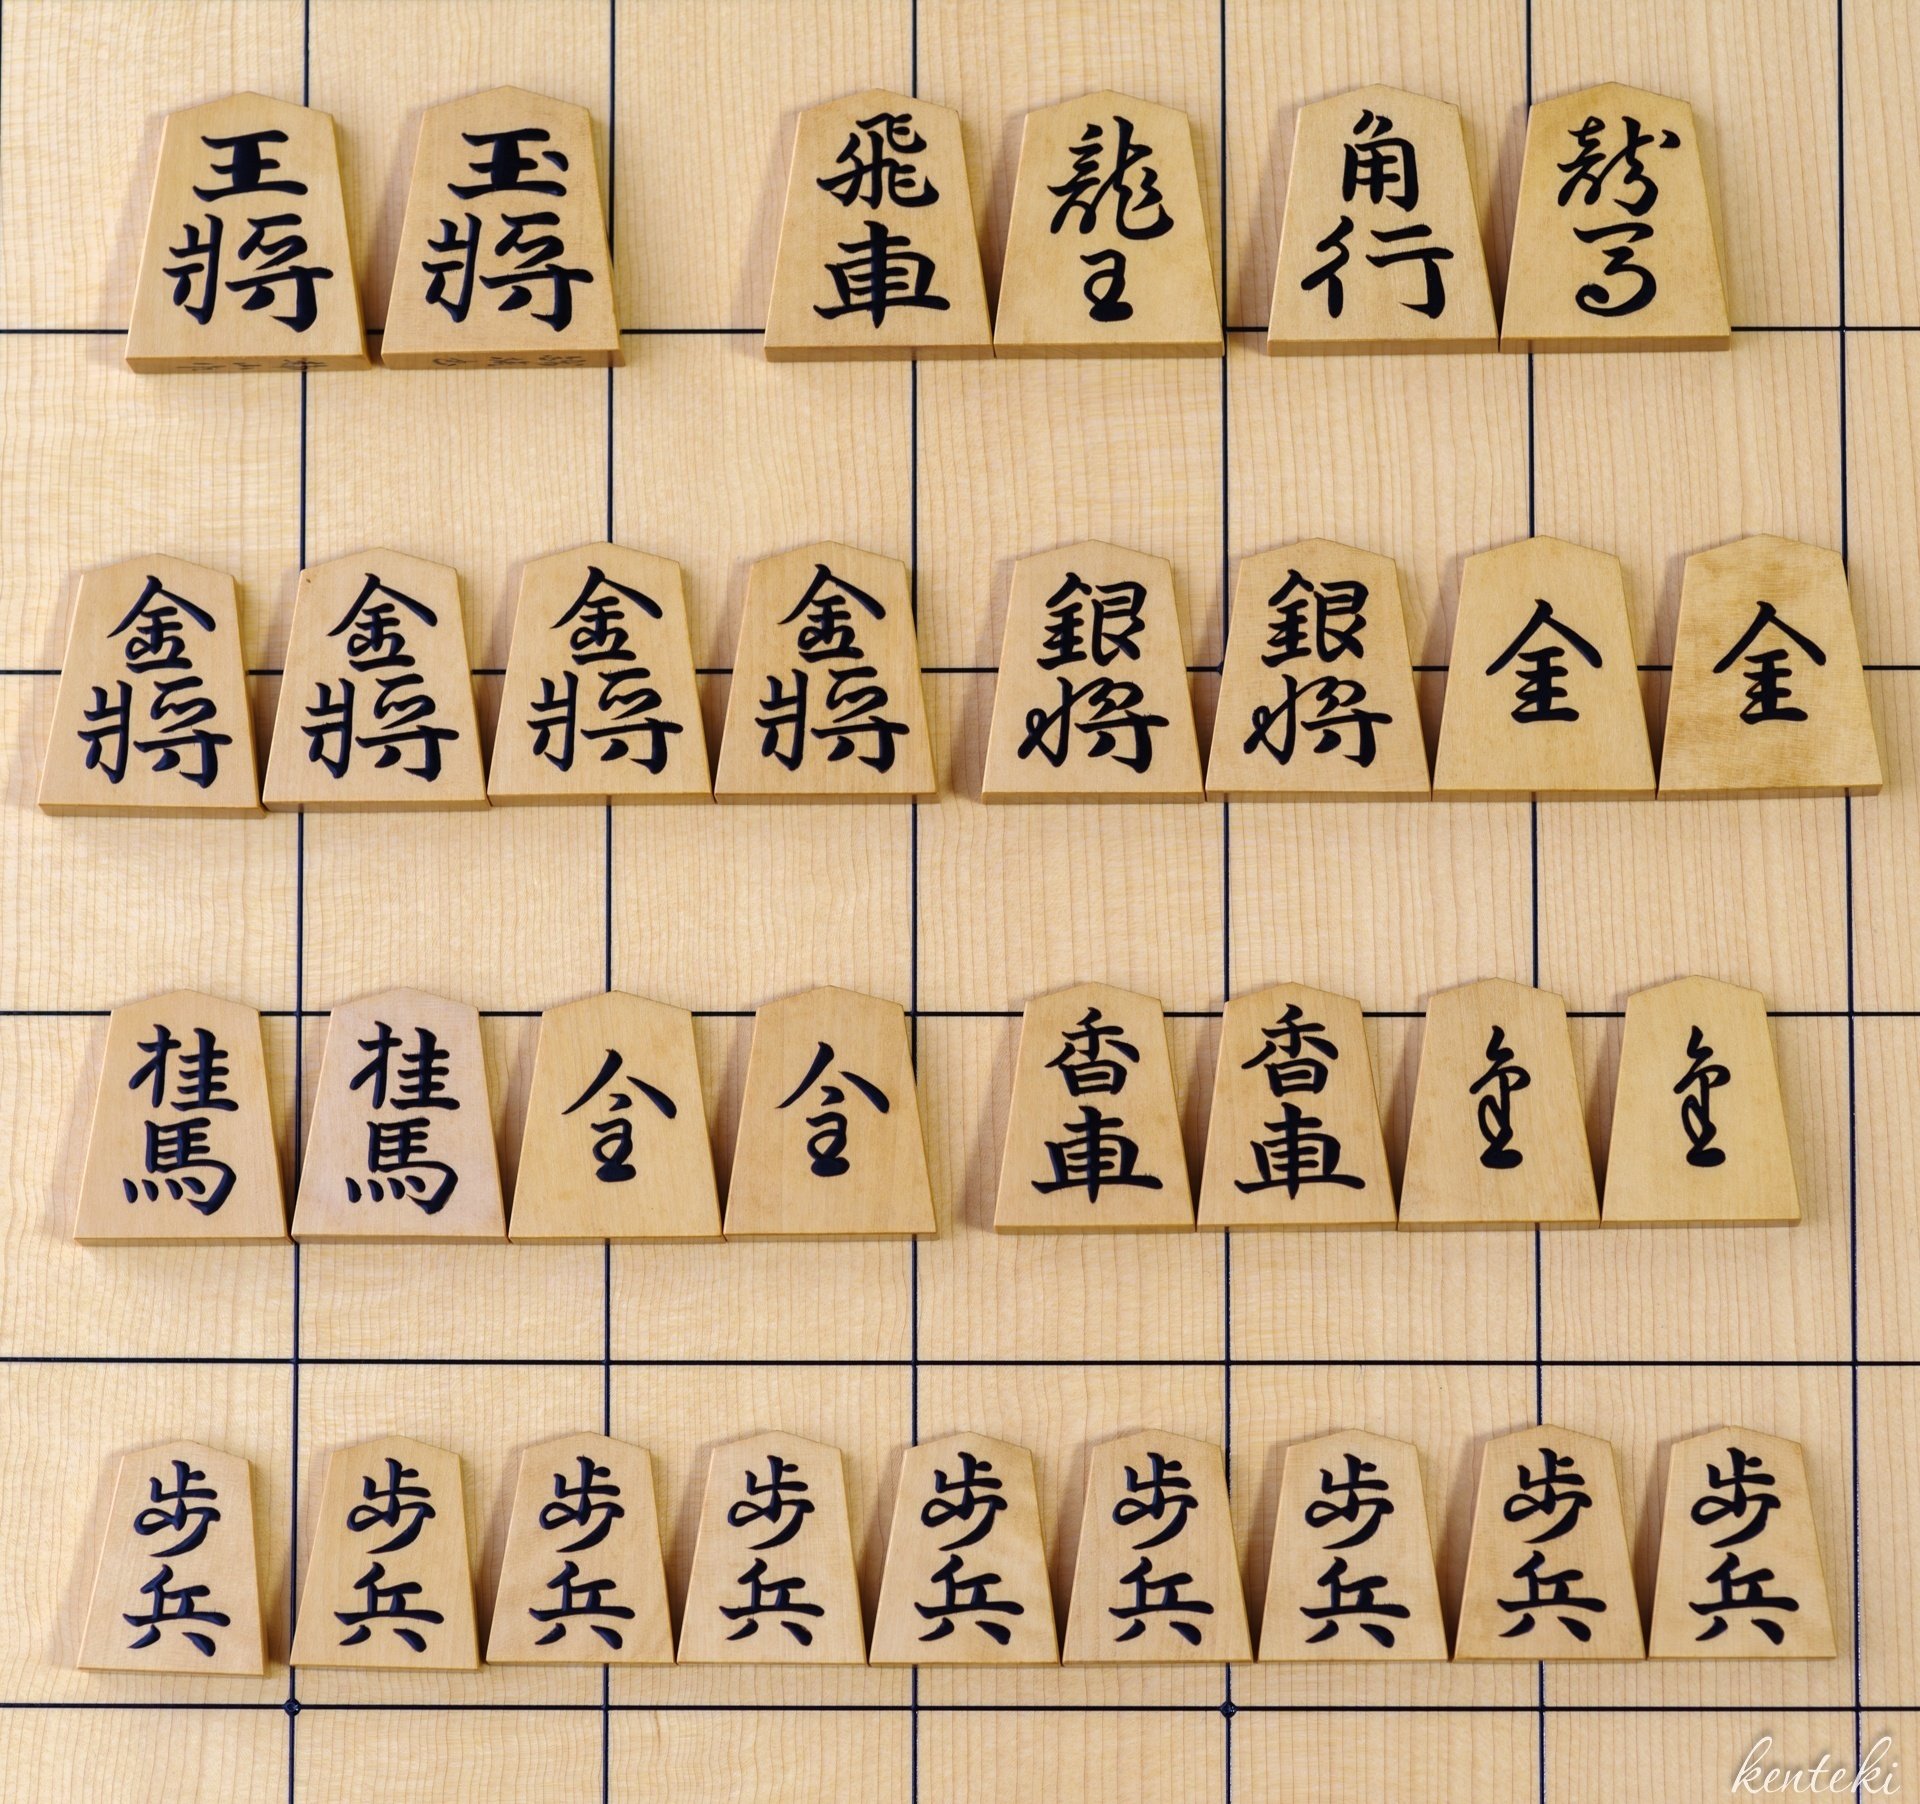 王將 玉將 飛車 龍王 角行 龍馬
金將 金將 金將 金將 銀将 銀将 金 金
桂馬 桂馬 全 全 香車 香車 金 金
歩兵 歩兵 歩兵 歩兵 歩兵 歩兵 歩兵 歩兵 歩兵
kenteki